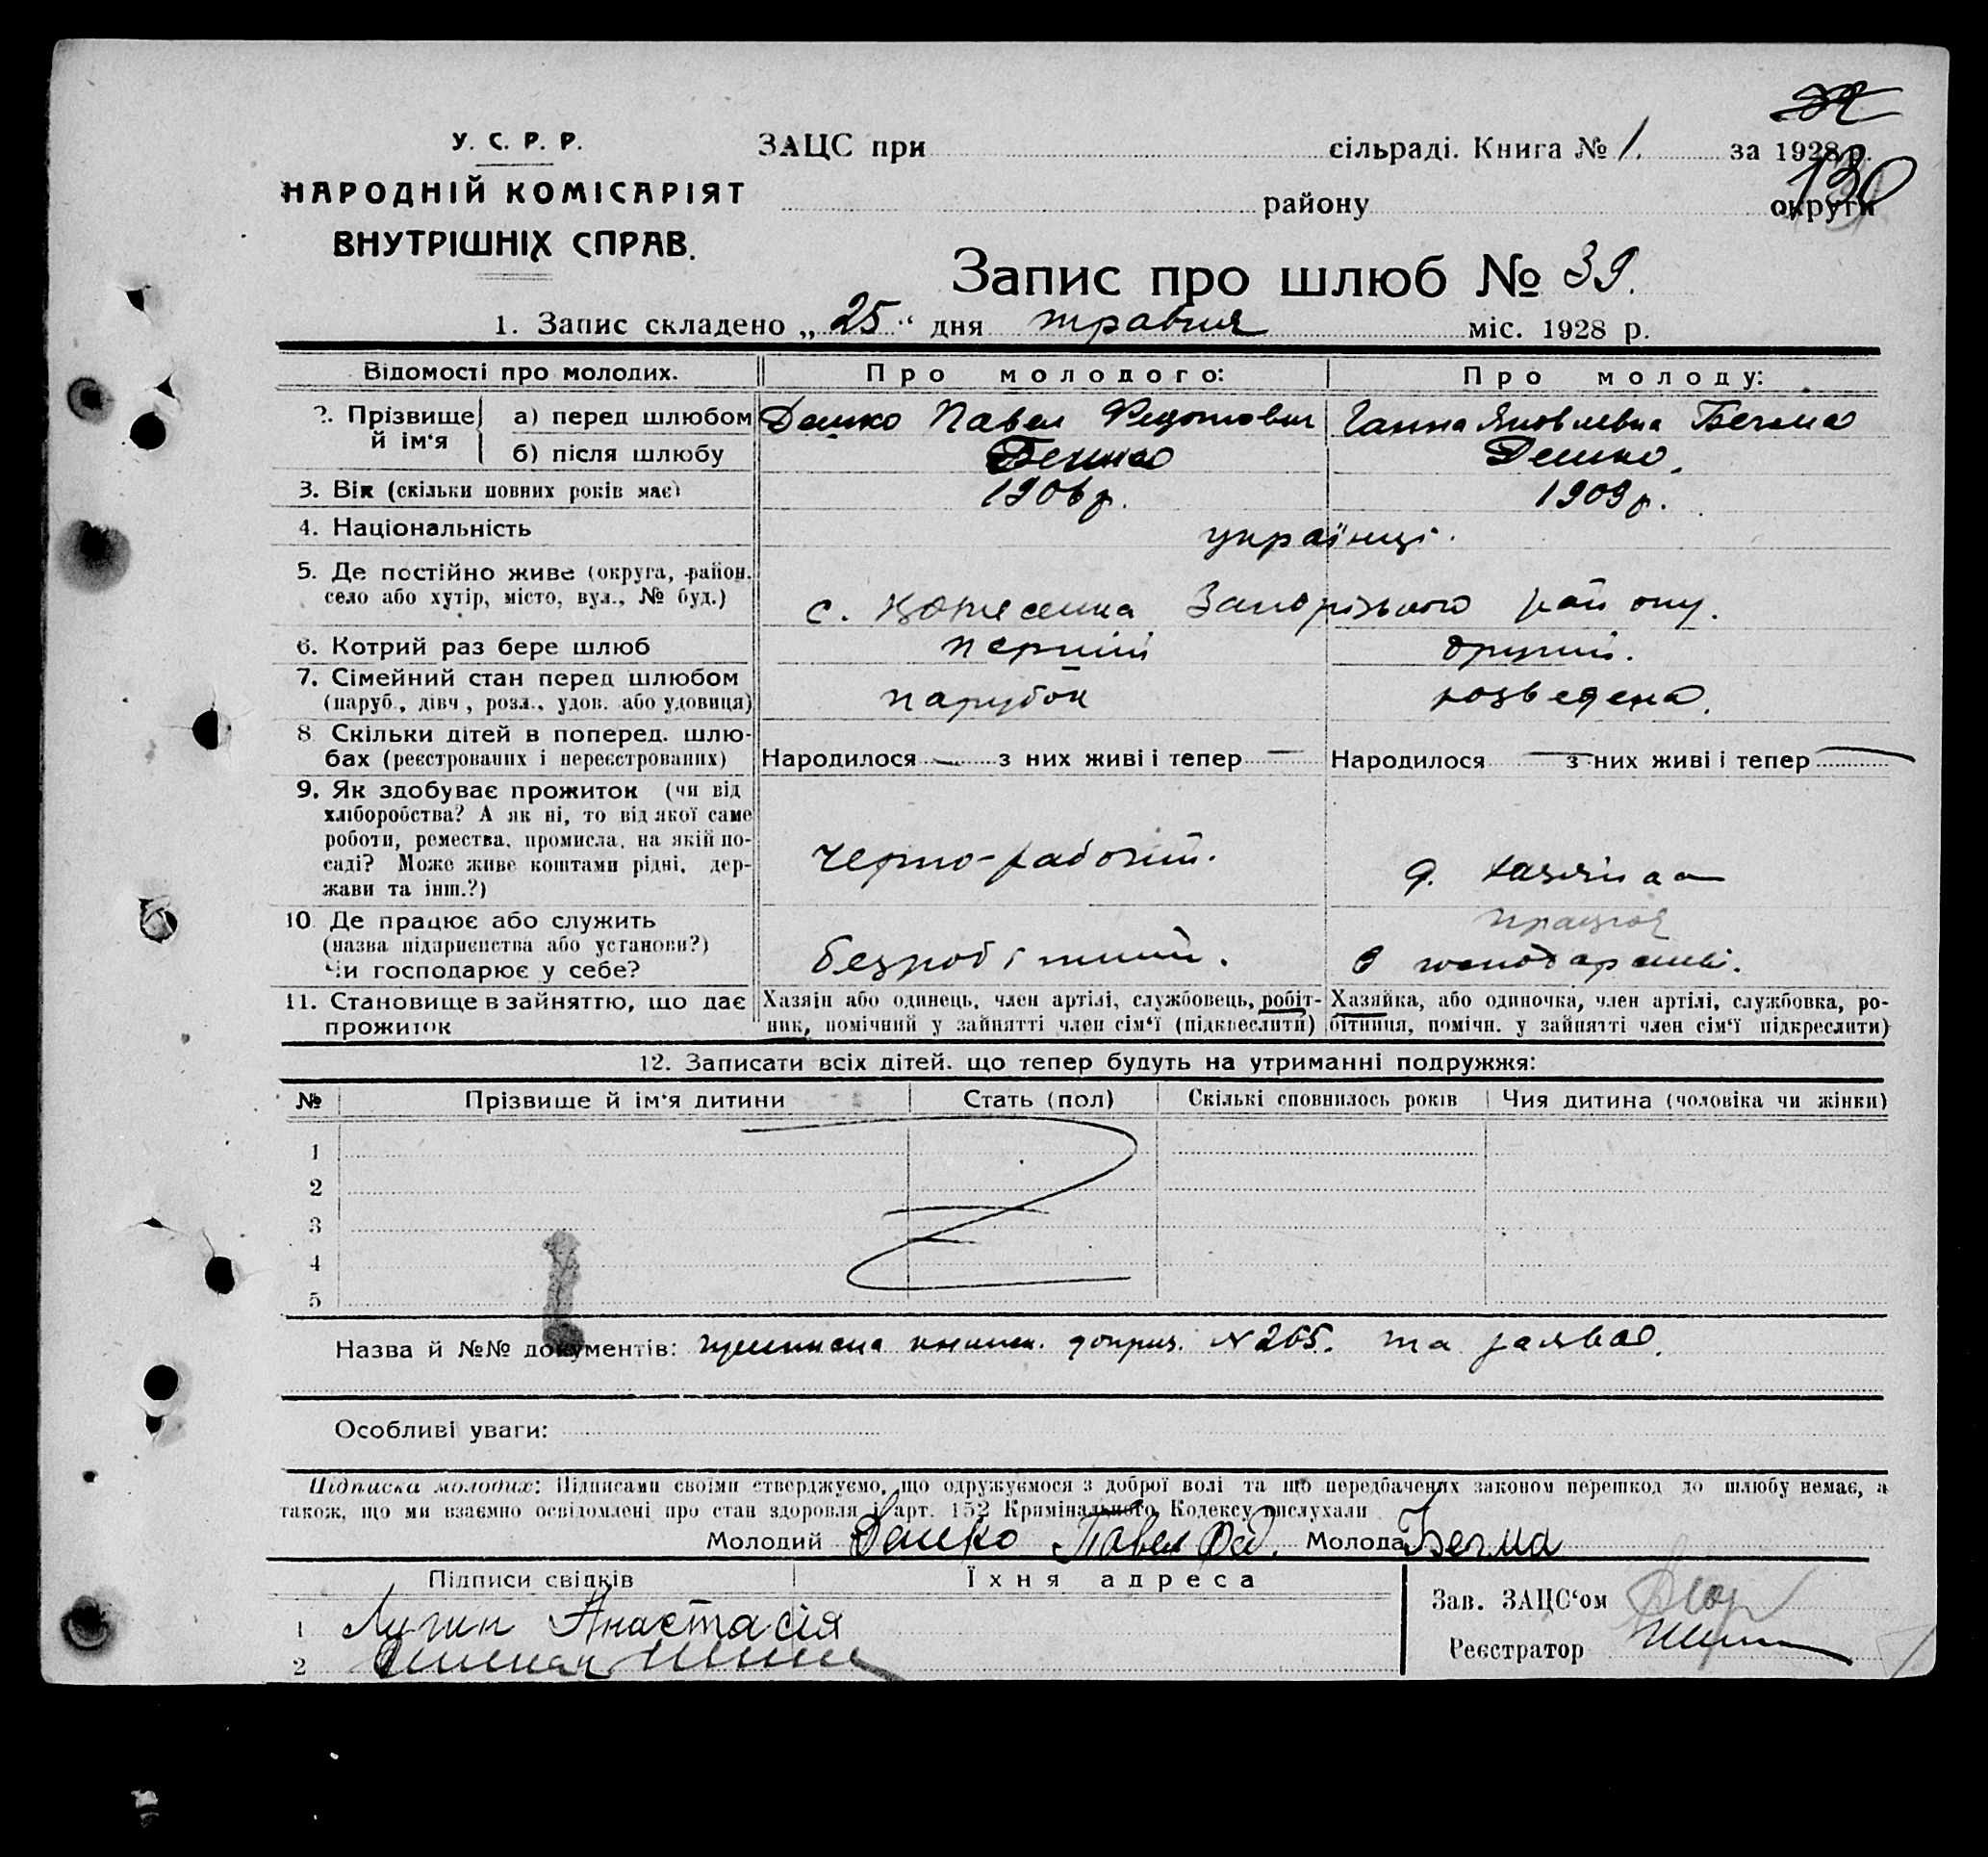 У. С. Р. Р.
НАРОДНІЙ КОМІСАРІЯТ
ВНУТРІШНІХ СПРАВ.
ЗАЦС при сільраді. Книга № 1. за 1928 р.
130
району округи
Запис про шлюб № 39.
1. Запис складено „25“ дня травня міс. 1928 р.
Відомості про молодих. Про молодого: Про молоду:
2. Прізвище й ім‘я а) перед шлюбом Дешко Павел Федотович Ганна Яковлевна Бечма
б) після шлюбу Дешко Дешко.
3. Вік (скільки повних років має) 1906 р. 1909 р.
4. Національність українці.
5. Де постійно живе (округа, район, село або хутір, місто, вул., № буд.) с. Вознесенка Запорізького району.
6. Котрий раз бере шлюб перший другий.
7. Сімейний стан перед шлюбом (паруб., дівч., розл., удов. або удовиця) парубок розведена.
8 Скільки дітей в поперед. шлюбах (реєстрованих і нереєстрованих) Народилося — з них живі і тепер — Народилося — з них живі і тепер —
9. Як здобуває прожиток (чи від хліборобства? А як ні, то від якої саме роботи, ремества, промисла, на якій посаді? Може живе коштами рідні, держави та інш.?) черно-рабочий.
10 Де працює або служить (назва підприєнства або установи?) Чи господарює у себе? безробітний. працює в господарстві.
11. Становище в зайняттю, що дає прожиток Хазяїн або одинець, член артілі, службовець, робітник, помічний у зайнятті член сім‘ї (підкреслити) Хазяйка, або одиночка, член артілі, службовка, робітниця, помічн. у зайнятті член сім‘ї підкреслити)
12. Записати всіх дітей. що тепер будуть на утриманні подружжя:
№ Прізвище й ім‘я дитини Стать (пол) Скількі сповнилось років Чия дитина (чоловіка чи жінки)
1
2
3
4
5
Назва й №№ документів: книжк. доприз. №265. та заява.
Особливі уваги:
Підписка молодих: Підписами своїми стверджуємо, що одружуємося з доброї волі та що передбачених законом перешкод до шлюбу немає, а
також, що ми взаємно освідомлені про стан здоровля і арт. 152 Кримінального Кодексу вислухали
Молодий Дешко Павел Фед. Молода Бечма
Підписи свідків Їхня адреса
1 Анастасія
2
Зав. ЗАЦС‘ом
Реєстратор